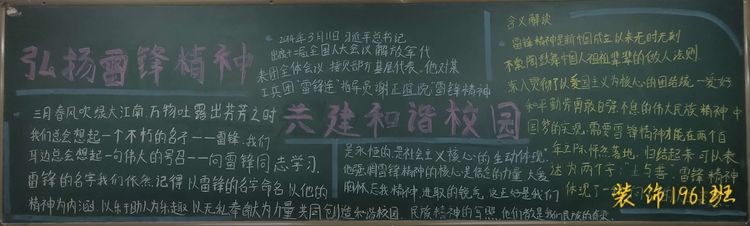 弘扬雷锋精神
共建和谐校园
2014年3月11日 习近平总书记
出席十二届全国人大会议 解放军代
表团全体会议 接见部分基层代表。他对某
工兵团"雷锋连"指导员谢正谊说"雷锋精神
是永恒的，是社会主义核心的生动体现"
他强调雷锋精神的核心是信念的力量 大爱
胸怀 忘我精神，进取的锐气，这正是我们
民族精神的写照，他们都是我们民族的脊梁。
三月春风吹绿大江南，万物吐露出芬芳之时
我们总会想起一个不朽的名字——雷锋。我们
耳边总会想起一句伟大的号召——向雷锋同志学习，
雷锋的名字我们依然记得 以雷锋的名字命名 以他的
精神为内涵 以乐于助人为乐趣 以无私奉献为力量 共同创造和谐校园
含义解读
雷锋精神是新中国成立以来无时无刻
祖祖辈辈的做人法则
以爱国主义为核心的团结统一 爱好
和平 勤劳勇敢 自强不息的伟大民族精神 中
国梦的实现，需要雷锋精神才能在两个
归结起来可以表
达为两个字："上与善" 雷锋精神
体现了一
装饰1961班